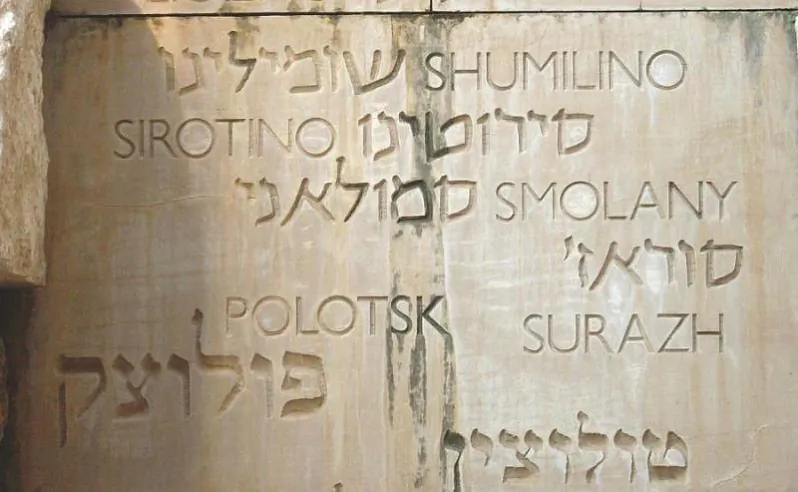 שומילינו SHUMILINO
SIROTINO סירוטינו
סמולאני SMOLANY
סוראז'
POLOTSK SURAZH
פולוצק
טולוצין